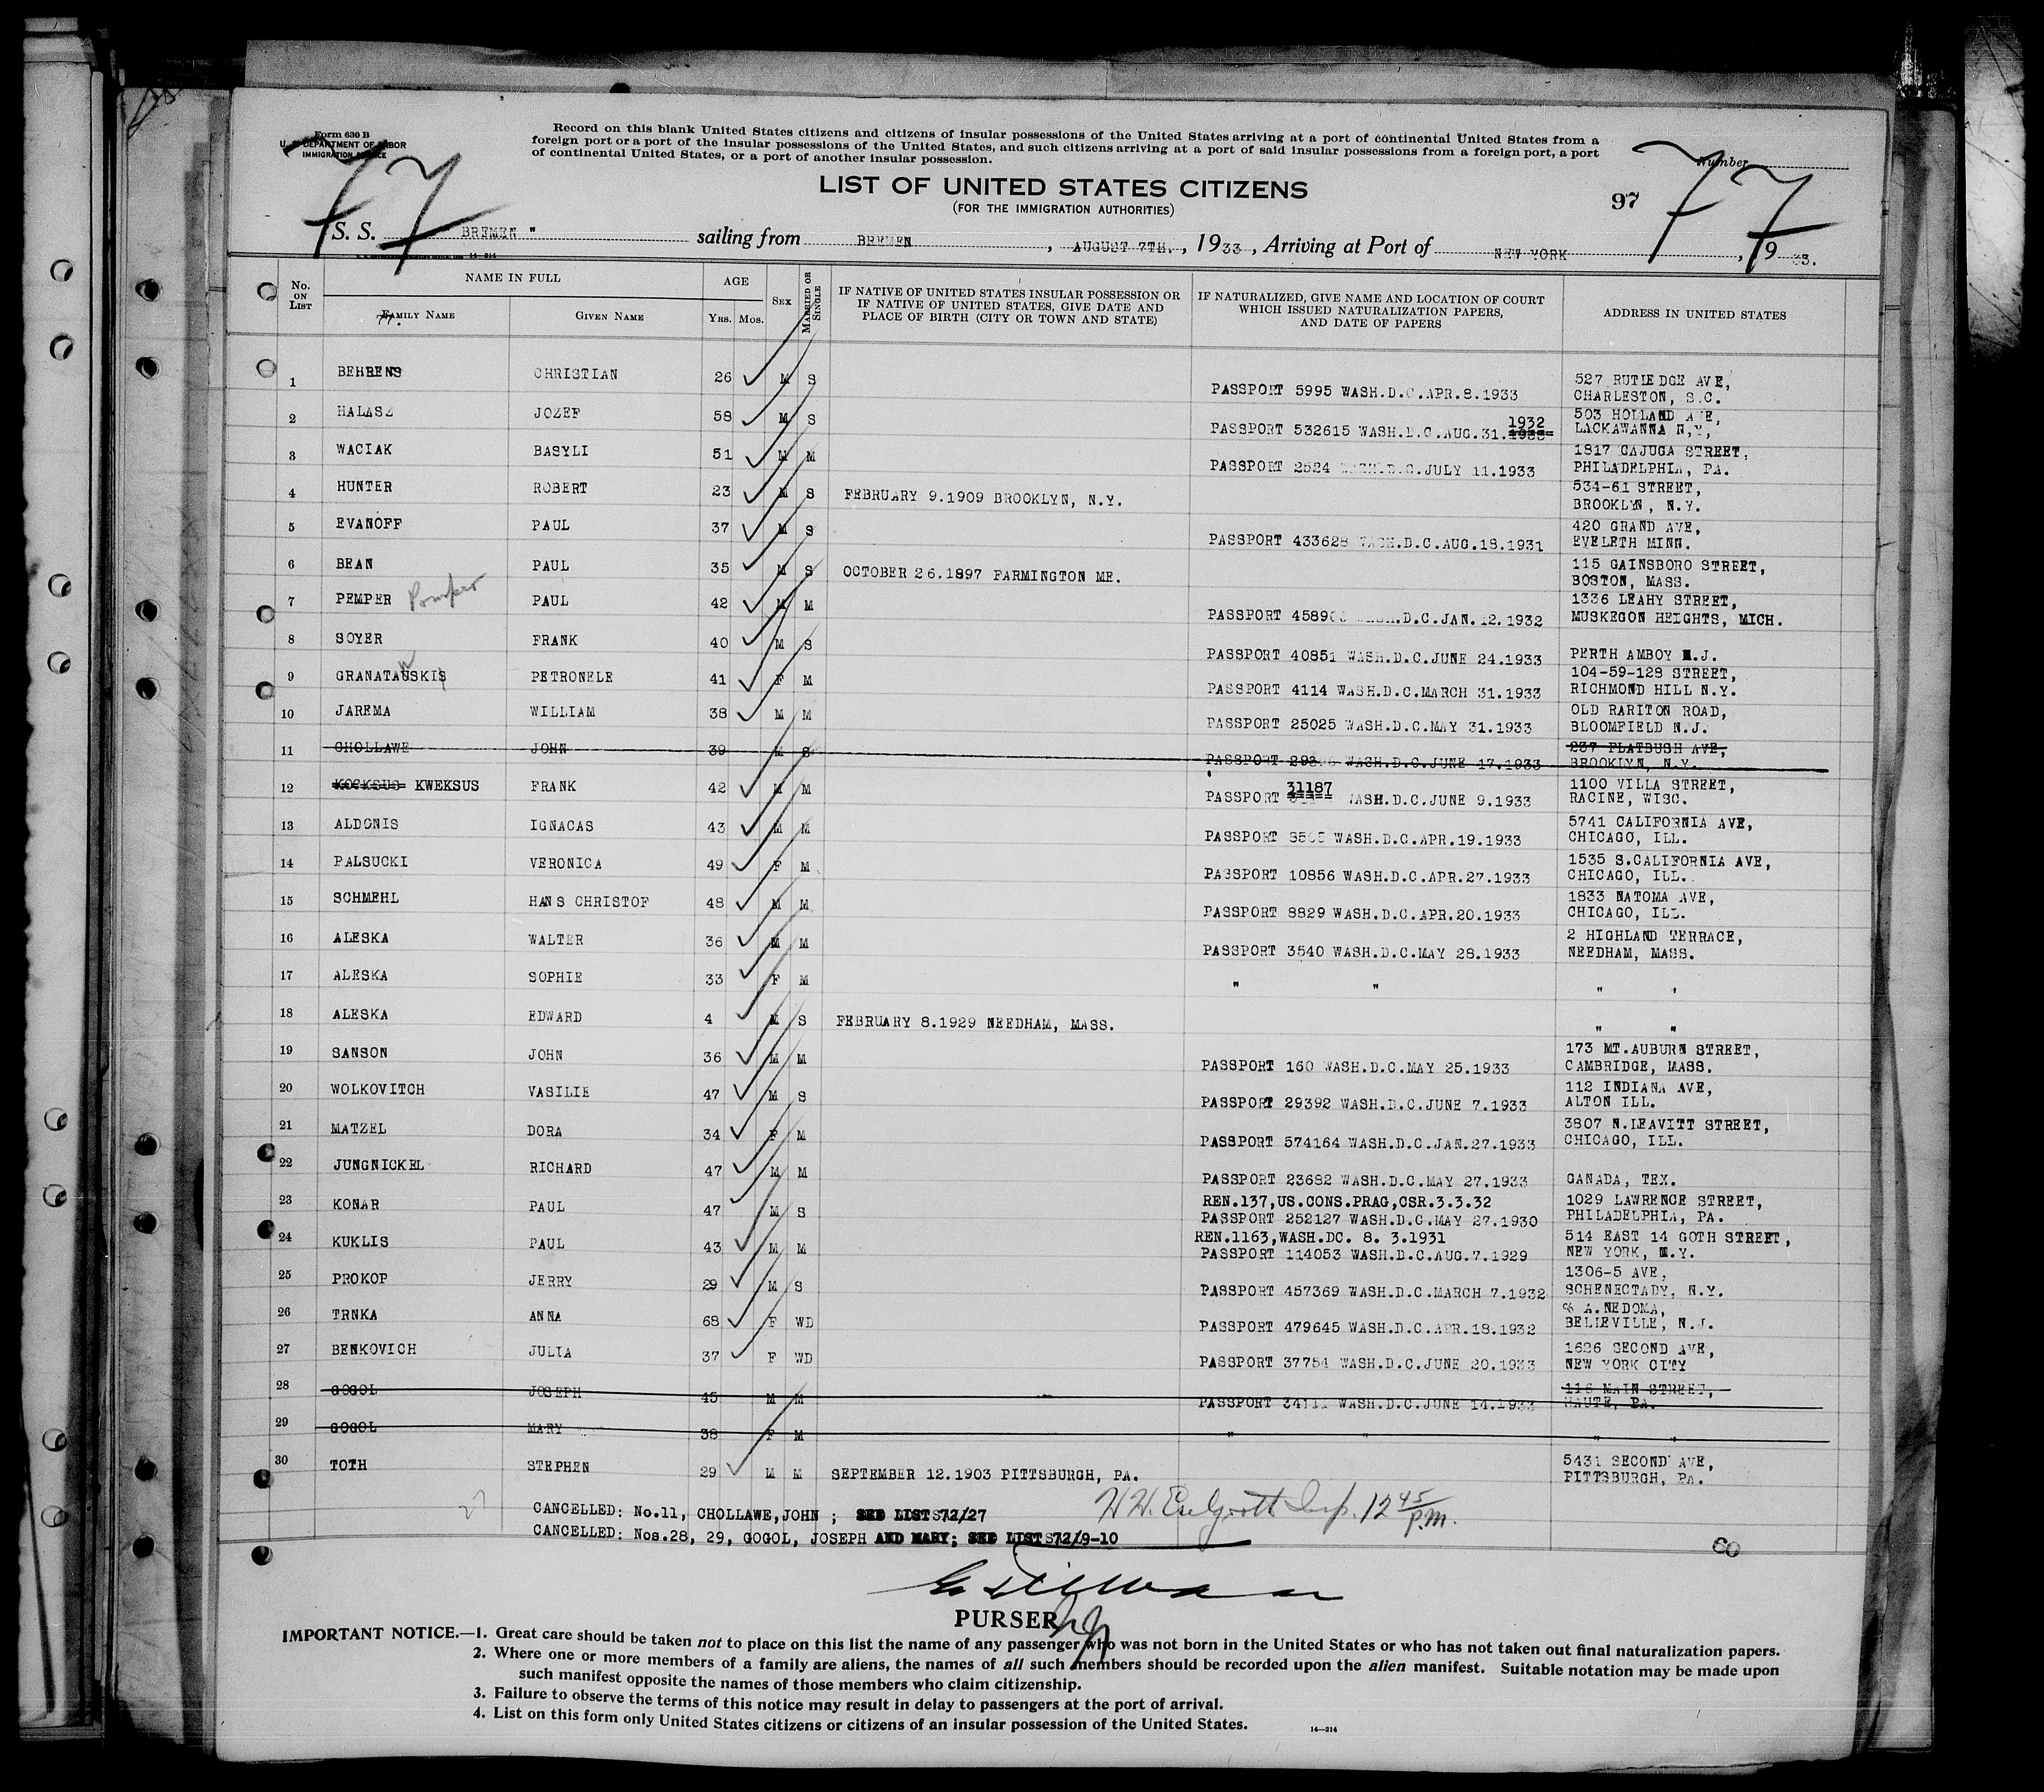 Form 630 B
U. S. DEPARTMENT OF LABOR
IMMIGRATION SERVICE
77
Record on this blank United States citizens and citizens of insular possessions of the United States arriving at a port of continental United States from a
foreign port or a port of the insular possessions of the United States, and such citizens arriving at a port of said insular possessions from a foreign port, a port
of continental United States, or a port of another insular possession.
Number
LIST OF UNITED STATES CITIZENS
(FOR THE IMMIGRATION AUTHORITIES)
97
77
S. S. BREMEN " sailing from BREMEN, AUGUST 7TH., 1933, Arriving at Port of NEW YORK, 1933.
No. ON LIST NAME IN FULL AGE SEX MARRIED OR SINGLE IF NATIVE OF UNITED STATES INSULAR POSSESSION OR IF NATIVE OF UNITED STATES, GIVE DATE AND PLACE OF BIRTH (CITY OR TOWN AND STATE) IF NATURALIZED, GIVE NAME AND LOCATION OF COURT WHICH ISSUED NATURALIZATION PAPERS, AND DATE OF PAPERS ADDRESS IN UNITED STATES
FAMILY NAME GIVEN NAME YRS. MOS.
77.
1 BEHRENS CHRISTIAN 26 M S PASSPORT 5995 WASH.D.C.APR.8.1933 527 RUTLEDGE AVE,
CHARLESTON, S.C.
2 HALASZ JOZEF 58 M S PASSPORT 532615 WASH.D.C.AUG.31.1932 503 HOLLAND AVE,
LACKAWANNA N.Y,
3 WACIAK BASYLI 51 M M PASSPORT 2524 WASH.D.C.JULY 11.1933 1817 CAJUGA STREET,
PHILADELPHIA, PA.
4 HUNTER ROBERT 23 M S FEBRUARY 9.1909 BROOKLYN, N.Y. 534-61 STREET,
BROOKLYN, N.Y.
5 EVANOFF PAUL 37 M S PASSPORT 433628 WASH.D.C.AUG.18.1931 420 GRAND AVE,
EVELETH MINN.
6 BEAN PAUL 35 M S OCTOBER 26.1897 FARMINGTON ME. 115 GAINSBORO STREET,
BOSTON, MASS.
7 PEMPER Pomper PAUL 42 M M PASSPORT WASH.D.C.JAN.12.1932 1336 LEAHY STREET,
MUSKEGON HEIGHTS, MICH.
8 SOYER FRANK 40 M S PASSPORT 40851 WASH.D.C.JUNE 24.1933 PERTH AMBOY N.J.
9 GRANATAUSKIS W PETRONELE 41 F M PASSPORT 4114 WASH.D.C.MARCH 31.1933 104-59-128 STREET,
RICHMOND HILL N.Y.
10 JAREMA WILLIAM 38 M M PASSPORT 25025 WASH.D.C.MAY 31.1933 OLD RARITON ROAD,
BLOOMFIELD N.J.
11 CHOLLAWE JOHN 39 M S PASSPORT WASH.D.C.JUNE 17.1933 237 FLATBUSH AVE,
BROOKLYN, N.Y.
12 KOEKSUS KWEKSUS FRANK 42 M M PASSPORT 31187 WASH.D.C.JUNE 9.1933 1100 VILLA STREET,
RACINE, WISC.
13 ALDONIS IGNACAS 43 M M PASSPORT WASH.D.C.APR.19.1933 5741 CALIFORNIA AVE,
CHICAGO, ILL.
14 PALSUCKI VERONICA 49 F M PASSPORT 10856 WASH.D.C.APR.27.1933 1535 S.CALIFORNIA AVE,
CHICAGO, ILL.
15 SCHMEHL HANS CHRISTOF 48 M M PASSPORT 8829 WASH.D.C.APR.20.1933 1833 NATOMA AVE,
CHICAGO, ILL.
16 ALESKA WALTER 36 M M PASSPORT 3540 WASH.D.C.MAY 28.1933 2 HIGHLAND TERRACE,
NEEDHAM, MASS.
17 ALESKA SOPHIE 33 F M " " " "
18 ALESKA EDWARD 4 M S FEBRUARY 8.1929 NEEDHAM, MASS. " "
19 SANSON JOHN 36 M M PASSPORT 160 WASH.D.C.MAY 25.1933 173 MT.AUBURN STREET,
CAMBRIDGE, MASS.
20 WOLKOVITCH VASILIE 47 M S PASSPORT 29392 WASH.D.C.JUNE 7.1933 112 INDIANA AVE,
ALTON ILL.
21 MATZEL DORA 34 F M PASSPORT 574164 WASH.D.C.JAN.27.1933 3807 N.LEAVITT STREET,
CHICAGO, ILL.
22 JUNGNICKEL RICHARD 47 M M PASSPORT 23682 WASH.D.C.MAY 27.1933 CANADA, TEX.
23 KONAR PAUL 47 M S REN.137,US.CONS.PRAG,CSR.3.3.32 1029 LAWRENCE STREET,
PASSPORT 252127 WASH.D.C.MAY 27.1930 PHILADELPHIA, PA.
24 KUKLIS PAUL 43 M M REN.1163,WASH.DC. 8. 3.1931 514 EAST 14 GOTH STREET,
PASSPORT 114053 WASH.D.C.AUG.7.1929 NEW YORK, N.Y.
25 PROKOP JERRY 29 M S PASSPORT 457369 WASH.D.C.MARCH 7.1932 1306-5 AVE,
SCHENECTADY, N.Y.
26 TRNKA ANNA 68 F WD PASSPORT 479645 WASH.D.C.APR.18.1932 % A.NEDOMA,
BELLEVILLE, N.J.
27 BENKOVICH JULIA 37 F WD PASSPORT 37754 WASH.D.C.JUNE 20.1933 1626 SECOND AVE,
NEW YORK CITY
28 GOGOL JOSEPH 45 M M PASSPORT WASH.D.C.JUNE 14.1933 116 MAIN STREET,
HAUTE, PA.
29 GOGOL MARY 38 F M " " " "
30 TOTH STEPHEN 29 M M SEPTEMBER 12.1903 PITTSBURGH, PA. 5431 SECOND AVE,
PITTSBURGH, PA.
27
CANCELLED: No.11, CHOLLAWE,JOHN ; SEE LISTS72/27
CANCELLED: Nos.28, 29, GOGOL, JOSEPH AND MARY; SEE LISTS72/9-10
Insp. 12 45 P.M.
60
PURSER
IMPORTANT NOTICE.—1. Great care should be taken not to place on this list the name of any passenger who was not born in the United States or who has not taken out final naturalization papers.
2. Where one or more members of a family are aliens, the names of all such members should be recorded upon the alien manifest. Suitable notation may be made upon
such manifest opposite the names of those members who claim citizenship.
3. Failure to observe the terms of this notice may result in delay to passengers at the port of arrival.
4. List on this form only United States citizens or citizens of an insular possession of the United States.
14—214